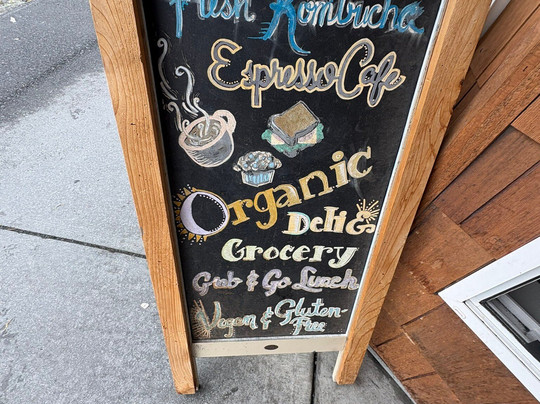 Fresh Kombucha
Espresso Cafe
Organic
Deli &
Grocery
Grab & Go Lunch
Vegan & Gluten-
Free